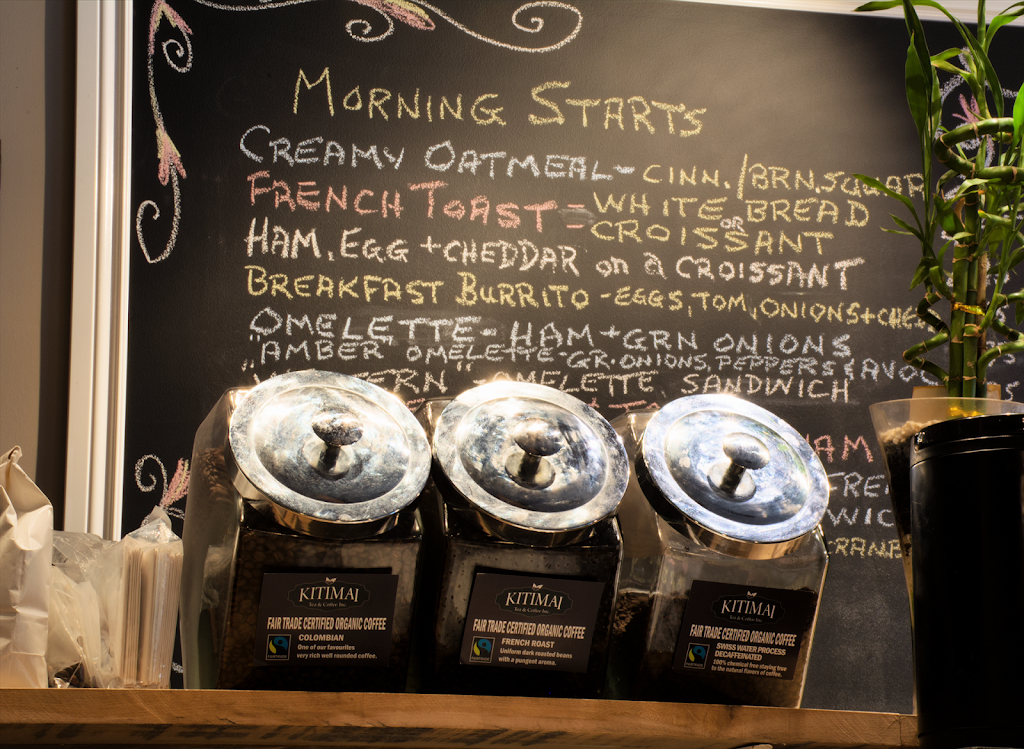 MORNING STARTS
CREAMY OATMEAL - CINN./BRN.SUGAR
FRENCH TOAST = WHITE BREAD
OR
CROISSANT
HAM, EGG + CHEDDAR on a CROISSANT
BREAKFAST BURRITO - EGGS, TOM, ONIONS + CHE
OMELETTE - HAM + GRN ONIONS
"AMBER OMELETTE - GR. ONIONS, PEPPERS & AVOC
OMELETTE SANDWICH
HAM
FRE
WIC
RANB
KITIMAJ
Tea & Coffee Inc.
FAIR TRADE CERTIFIED ORGANIC COFFEE
COLOMBIAN
One of our favourites
very rich well rounded coffee.
FAIRTRADE
KITIMAJ
Tea & Coffee Inc.
FAIR TRADE CERTIFIED ORGANIC COFFEE
FRENCH ROAST
Uniform dark roasted beans
with a pungent aroma.
FAIRTRADE
KITIMAJ
Tea & Coffee Inc.
FAIR TRADE CERTIFIED ORGANIC COFFEE
SWISS WATER PROCESS
DECAFFEINATED
100% chemical free staying true
to the natural flavors of coffee.
FAIRTRADE